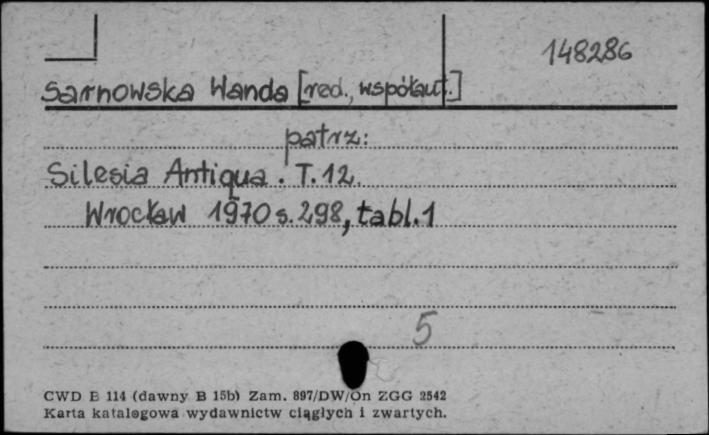 148286
Sarnowska Wanda [red., współaut.]
patrz:
Silesia Antiqua. T.12.
Wrocław 1970 s.298, tabl.1
5
CWD B 114 (dawny B 15b) Zam. 897/DW/On ZGG 2542
Karta katalogowa wydawnictw ciągłych i zwartych.